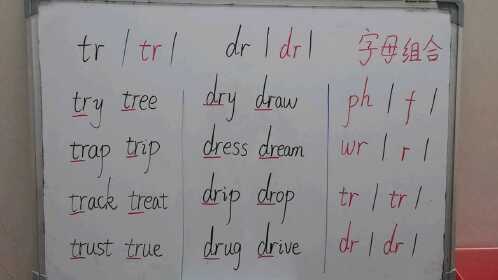 tr /tr/ dr /dr/ 字母组合
try tree dry draw ph /f/
trap trip dress dream wr /r/
track treat drip drop tr /tr/
trust true drug drive dr /dr/